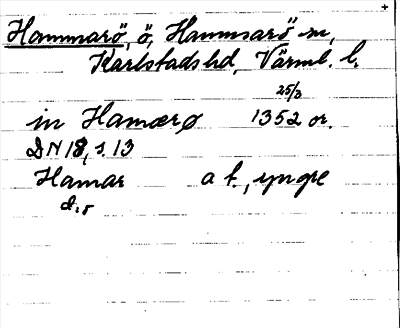 Hammarö, ö, Hammarö sn,
Karlstads hd, Värml. l.
25/3
in Hamærø 1352 or.
DN 18, s. 13
Hamar a t., yngre
d:o